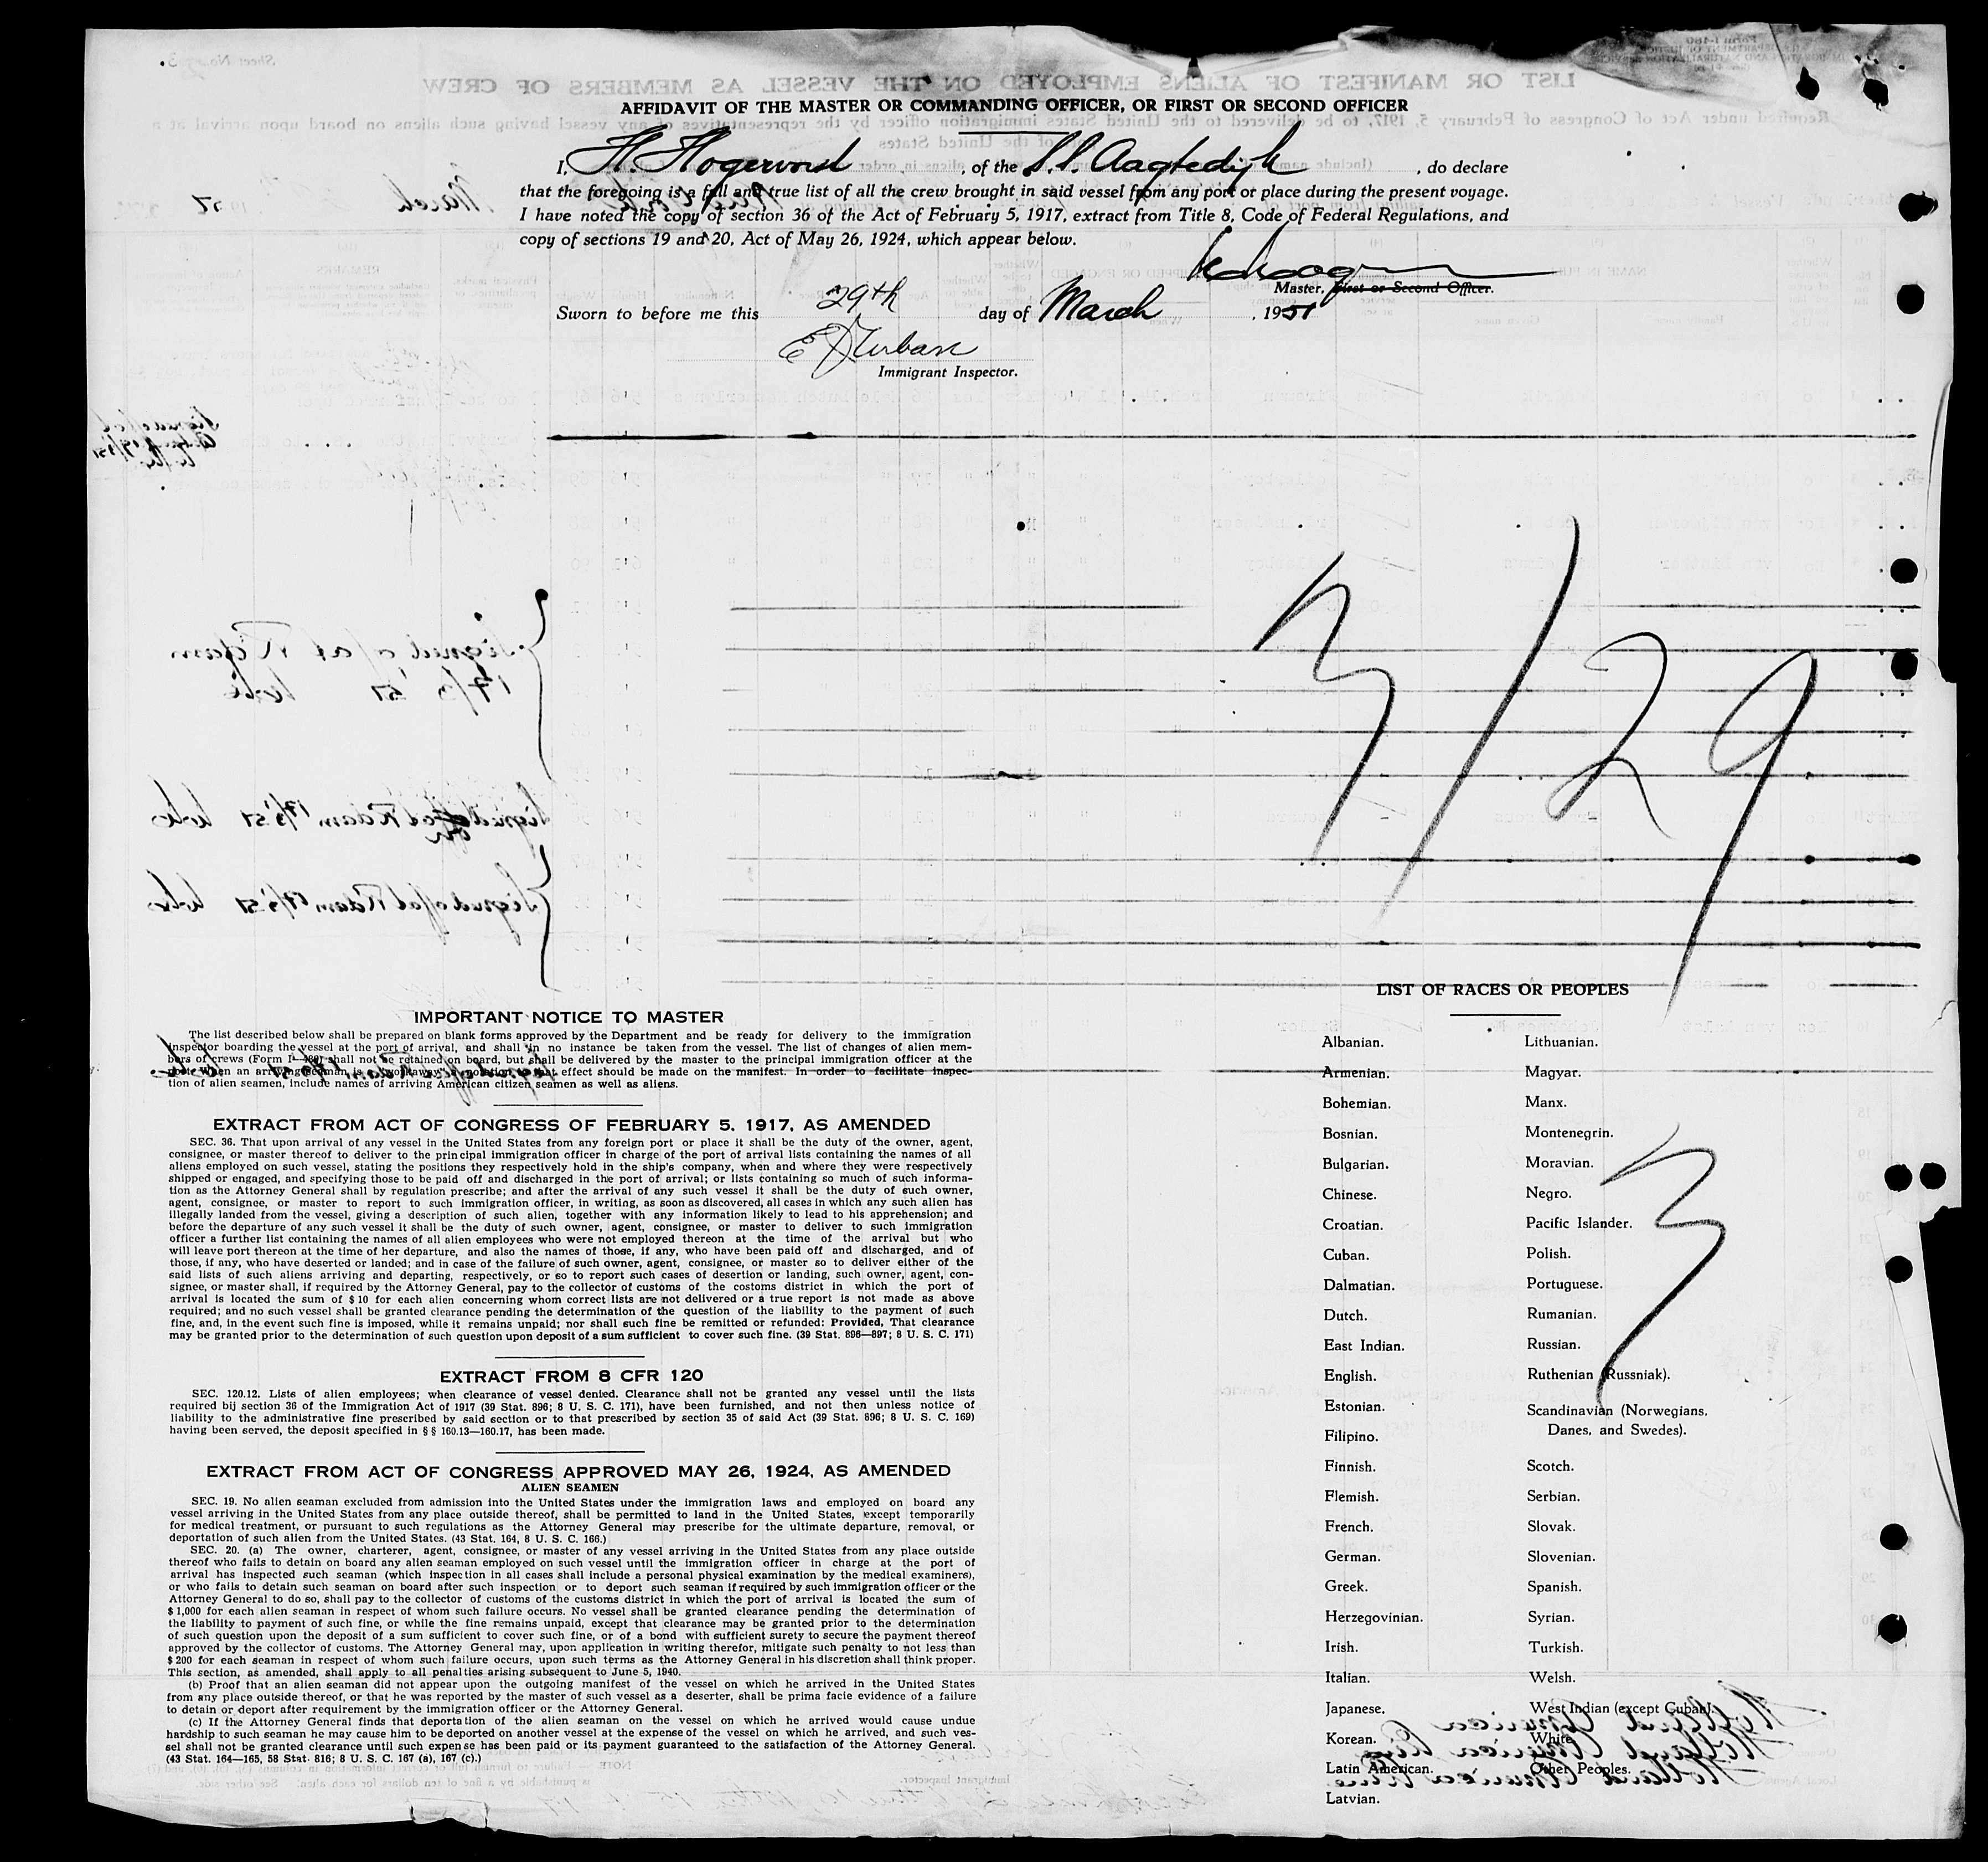 AFFIDAVIT OF THE MASTER OR COMMANDING OFFICER, OR FIRST OR SECOND OFFICER
I, H. Hogervorst, of the S.S. Aagtedijk, do declare
that the foregoing is a full and true list of all the crew brought in said vessel from any port or place during the present voyage.
I have noted the copy of section 36 of the Act of February 5, 1917, extract from Title 8, Code of Federal Regulations, and
copy of sections 19 and 20, Act of May 26, 1924, which appear below.
Master, First or Second Officer.
Sworn to before me this 29th day of March, 1951
Immigrant Inspector.
3/29
IMPORTANT NOTICE TO MASTER
The list described below shall be prepared on blank forms approved by the Department and be ready for delivery to the immigration
inspector boarding the vessel at the port of arrival, and shall in no instance be taken from the vessel. The list of changes of alien mem-
bers of crews (Form I-489) shall not be retained on board, but shall be delivered by the master to the principal immigration officer at the
port. When an arriving seaman is a workaway, a notation to that effect should be made on the manifest. In order to facilitate inspec-
tion of alien seamen, include names of arriving American citizen seamen as well as aliens.
EXTRACT FROM ACT OF CONGRESS OF FEBRUARY 5, 1917, AS AMENDED
SEC. 36. That upon arrival of any vessel in the United States from any foreign port or place it shall be the duty of the owner, agent,
consignee, or master thereof to deliver to the principal immigration officer in charge of the port of arrival lists containing the names of all
aliens employed on such vessel, stating the positions they respectively hold in the ship's company, when and where they were respectively
shipped or engaged, and specifying those to be paid off and discharged in the port of arrival; or lists containing so much of such informa-
tion as the Attorney General shall by regulation prescribe; and after the arrival of any such vessel it shall be the duty of such owner,
agent, consignee, or master to report to such immigration officer, in writing, as soon as discovered, all cases in which any such alien has
illegally landed from the vessel, giving a description of such alien, together with any information likely to lead to his apprehension; and
before the departure of any such vessel it shall be the duty of such owner, agent, consignee, or master to deliver to such immigration
officer a further list containing the names of all alien employees who were not employed thereon at the time of the arrival but who
will leave port thereon at the time of her departure, and also the names of those, if any, who have been paid off and discharged, and of
those, if any, who have deserted or landed; and in case of the failure of such owner, agent, consignee, or master so to deliver either of the
said lists of such aliens arriving and departing, respectively, or so to report such cases of desertion or landing, such owner, agent, con-
signee, or master shall, if required by the Attorney General, pay to the collector of customs of the costoms district in which the port of
arrival is located the sum of $10 for each alien concerning whom correct lists are not delivered or a true report is not made as above
required; and no such vessel shall be granted clearance pending the determination of the question of the liability to the payment of such
fine, and, in the event such fine is imposed, while it remains unpaid; nor shall such fine be remitted or refunded: Provided, That clearance
may be granted prior to the determination of such question upon deposit of a sum sufficient to cover such fine. (39 Stat. 896—897; 8 U. S. C. 171)
EXTRACT FROM 8 CFR 120
SEC. 120.12. Lists of alien employees; when clearance of vessel denied. Clearance shall not be granted any vessel until the lists
required bij section 36 of the Immigration Act of 1917 (39 Stat. 896; 8 U. S. C. 171), have been furnished, and not then unless notice of
liability to the administrative fine prescribed by said section or to that prescribed by section 35 of said Act (39 Stat. 896; 8 U. S. C. 169)
having been served, the deposit specified in § § 160.13—160.17, has been made.
EXTRACT FROM ACT OF CONGRESS APPROVED MAY 26, 1924, AS AMENDED
ALIEN SEAMEN
SEC. 19. No alien seaman excluded from admission into the United States under the immigration laws and employed on board any
vessel arriving in the United States from any place outside thereof, shall be permitted to land in the United States, except temporarily
for medical treatment, or pursuant to such regulations as the Attorney General may prescribe for the ultimate departure, removal, or
deportation of such alien from the United States. (43 Stat. 164, 8 U. S. C. 166.)
SEC. 20. (a) The owner, charterer, agent, consignee, or master of any vessel arriving in the United States from any place outside
thereof who fails to detain on board any alien seaman employed on such vessel until the immigration officer in charge at the port of
arrival has inspected such seaman (which inspection in all cases shall include a personal physical examination by the medical examiners),
or who fails to detain such seaman on board after such inspection or to deport such seaman if required by such immigration officer or the
Attorney General to do so, shall pay to the collector of customs of the customs district in which the port of arrival is located the sum of
$1,000 for each alien seaman in respect of whom such failure occurs. No vessel shall be granted clearance pending the determination of
the liability to payment of such fine, or while the fine remains unpaid, except that clearance may be granted prior to the determination
of such question upon the deposit of a sum sufficient to cover such fine, or of a bond with sufficient surety to secure the payment thereof
approved by the collector of customs. The Attorney General may, upon application in writing therefor, mitigate such penalty to not less than
$200 for each seaman in respect of whom such failure occurs, upon such terms as the Attorney General in his discretion shall think proper.
This section, as amended, shall apply to all penalties arising subsequent to June 5, 1940.
(b) Proof that an alien seaman did not appear upon the outgoing manifest of the vessel on which he arrived in the United States
from any place outside thereof, or that he was reported by the master of such vessel as a deserter, shall be prima facie evidence of a failure
to detain or deport after requirement by the immigration officer or the Attorney General.
(c) If the Attorney General finds that deportation of the alien seaman on the vessel on which he arrived would cause undue
hardship to such seaman he may cause him to be deported on another vessel at the expense of the vessel on which he arrived, and such ves-
sel shall not be granted clearance until such expense has been paid or its payment guaranteed to the satisfaction of the Attorney General.
(43 Stat. 164—165, 58 Stat. 816; 8 U. S. C. 167 (a), 167 (c).)
LIST OF RACES OR PEOPLES
Albanian.
Armenian.
Bohemian.
Bosnian.
Bulgarian.
Chinese.
Croatian.
Cuban.
Dalmatian.
Dutch.
East Indian.
English.
Estonian.
Filipino.
Finnish.
Flemish.
French.
German.
Greek.
Herzegovinian.
Irish.
Italian.
Japanese.
Korean.
Latin American.
Latvian.
Lithuanian.
Magyar.
Manx.
Montenegrin.
Moravian.
Negro.
Pacific Islander.
Polish.
Portuguese.
Rumanian.
Russian.
Ruthenian (Russniak).
Scandinavian (Norwegians,
Danes, and Swedes).
Scotch.
Serbian.
Slovak.
Slovenian.
Spanish.
Syrian.
Turkish.
Welsh.
West Indian (except Cuban).
White.
Other Peoples.
3